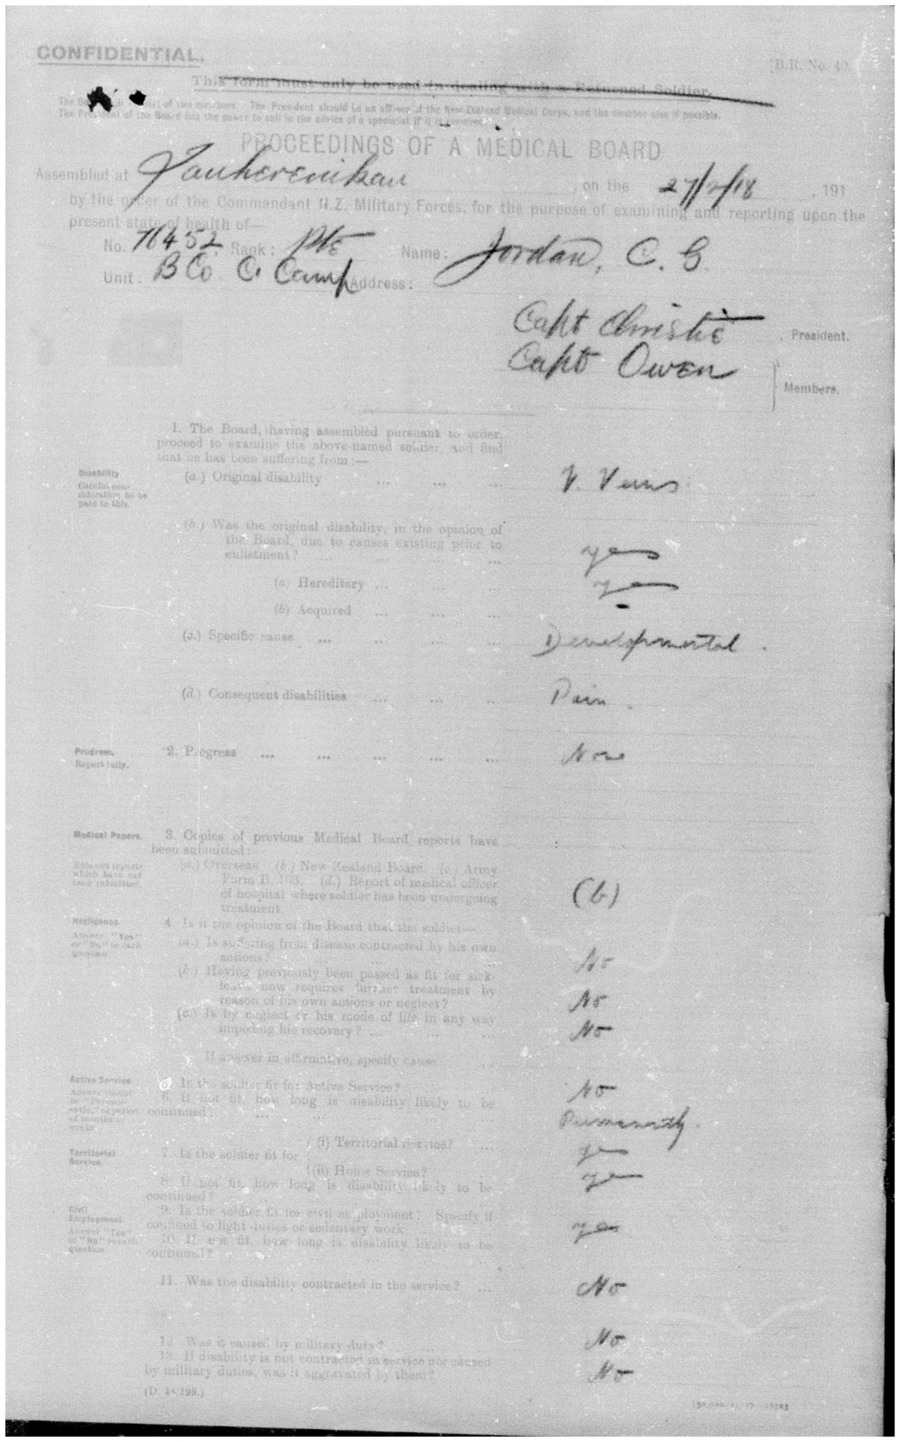 CONFIDENTIAL.
[B.R. No. 49.
This form must only be used in dealing with a Returned Soldier.
The Board of two members. The President should be an officer of the New Zealand Medical Corps, and the member also if possible.
The President of the Board has the power to call in the advice of a specialist if it is required.
PROCEEDINGS OF A MEDICAL BOARD
Assembled at Tauherenikau, on the 27/2/18, 191
by the order of the Commandant N.Z. Military Forces, for the purpose of examining and reporting upon the
present state of health of—
No. 76452 Rank: Pte Name: Jordan, C. G.
Unit: B Co C1 Camp Address:
Capt Christie, President.
Capt Owen
Members.
1. The Board, having assembled pursuant to order,
proceed to examine the above-named soldier, and find
that he has been suffering from:—
Disability
Careful con-
sideration to be
paid to this.
(a.) Original disability ... ... ... V. Veins
(b.) Was the original disability, in the opinion of
the Board, due to causes existing prior to
enlistment? ... ... yes
(a) Hereditary ... ... ... yes
(b) Acquired ... ... ... -
(c.) Specific cause ... ... ... ... Developmental.
(d.) Consequent disabilities ... ... ... Pain.
Progress.
Report fully.
2. Progress ... ... ... ... ... None
Medical Papers.
3. Copies of previous Medical Board reports have
been submitted:—
Relevant reports
which have not
been submitted
(a.) Overseas (b.) New Zealand Board (c.) Army
Form B. 103. (d.) Report of medical officer
of hospital where soldier has been undergoing
treatment. (b)
Negligence.
Answer "Yes"
or "No" to each
question
4. Is it the opinion of the Board that the soldier—
(a.) Is suffering from disease contracted by his own
actions? ... No
(b.) Having previously been passed as fit for sick-
leave now requires further treatment by
reason of his own actions or neglect? No
(c.) Is by neglect or his mode of life in any way
impeding his recovery? ... No
If answer in affirmative, specify cause ...
Active Service.
5. Is the soldier fit for Active Service? No
6. If not fit, how long is disability likely to be
continued? ... ... Permanently.
Territorial
Service.
7. Is the soldier fit for (i) Territorial Service? ... yes
(ii) Home Service? yes
8. If not fit, how long is disability likely to be
continued?
Civil
Employment.
Answer "Yes"
or "No" to each
question.
9. Is the soldier fit for civil employment? Specify if
confined to light duties or sedentary work yes
10. If not fit, how long is disability likely to be
continued?
11. Was the disability contracted in the service? ... No
12. Was it caused by military duty? ... No
13. If disability is not contracted in service nor caused
by military duties, was it aggravated by them? No